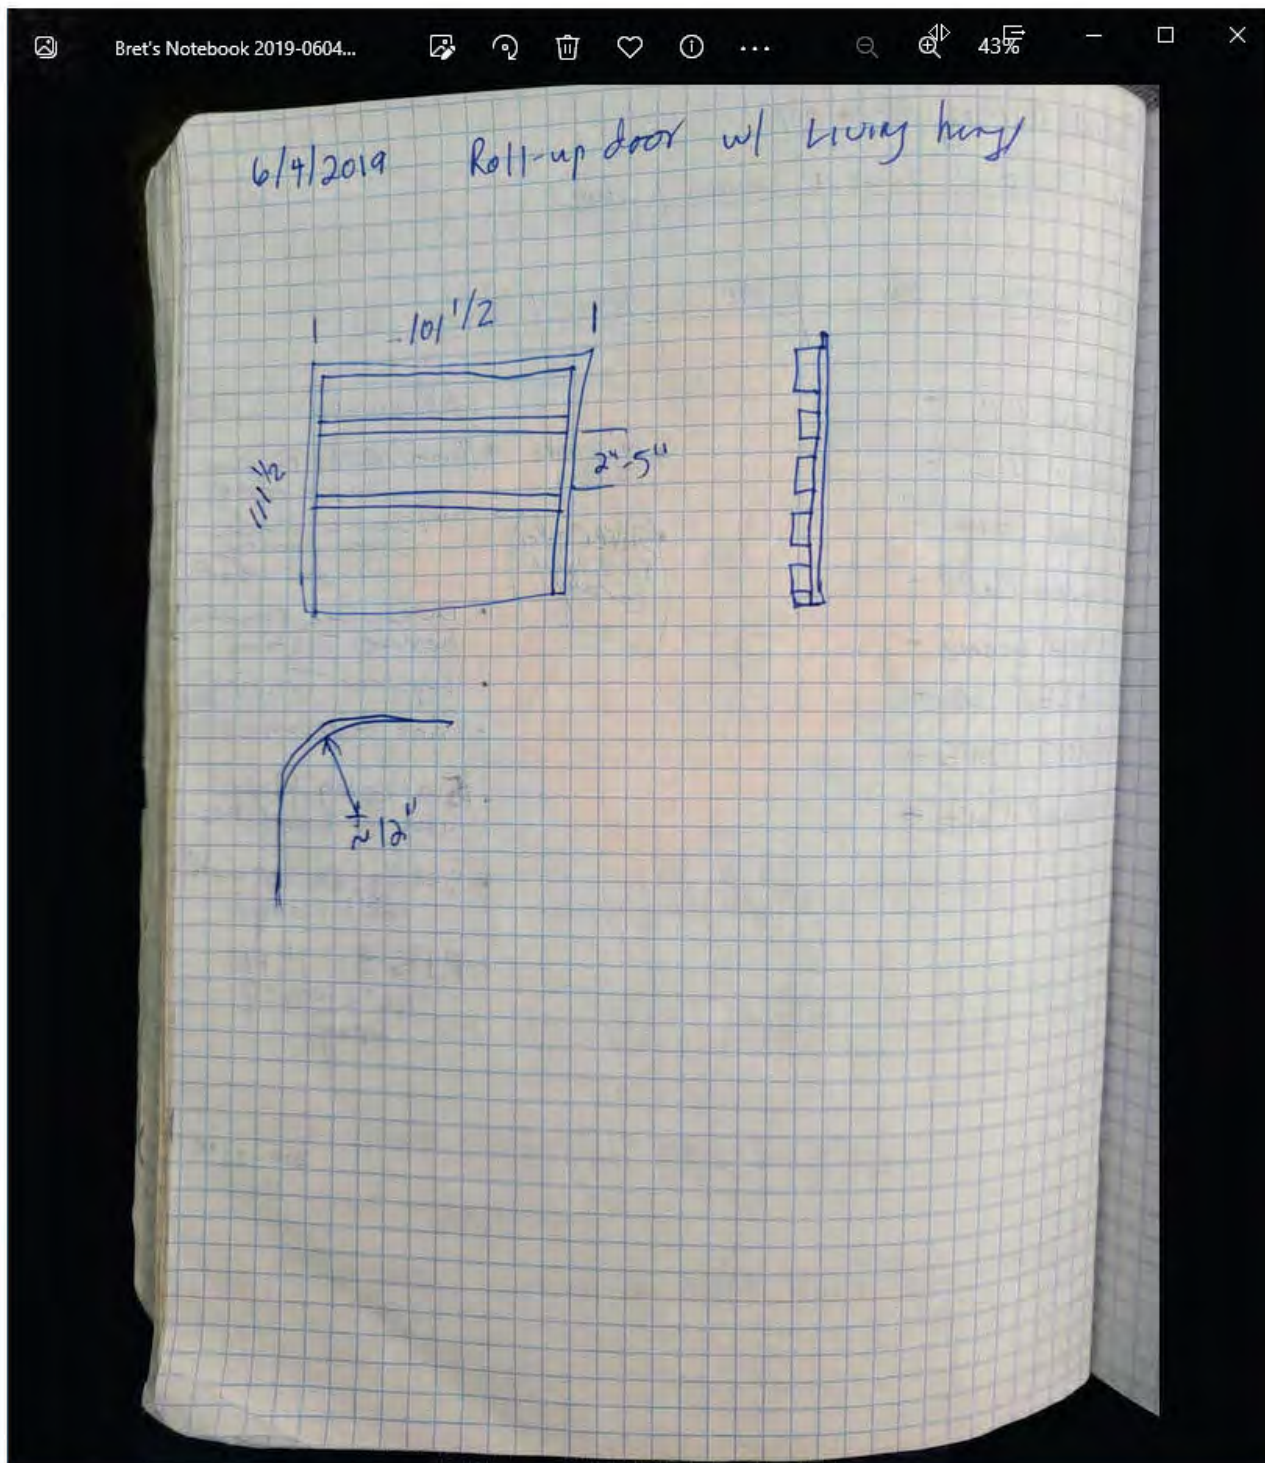 Bret's Notebook 2019-0604...
43%
6/4/2019 Roll-up door w/ Living hinge
101 1/2
111 1/2
2"-5"
≈12"